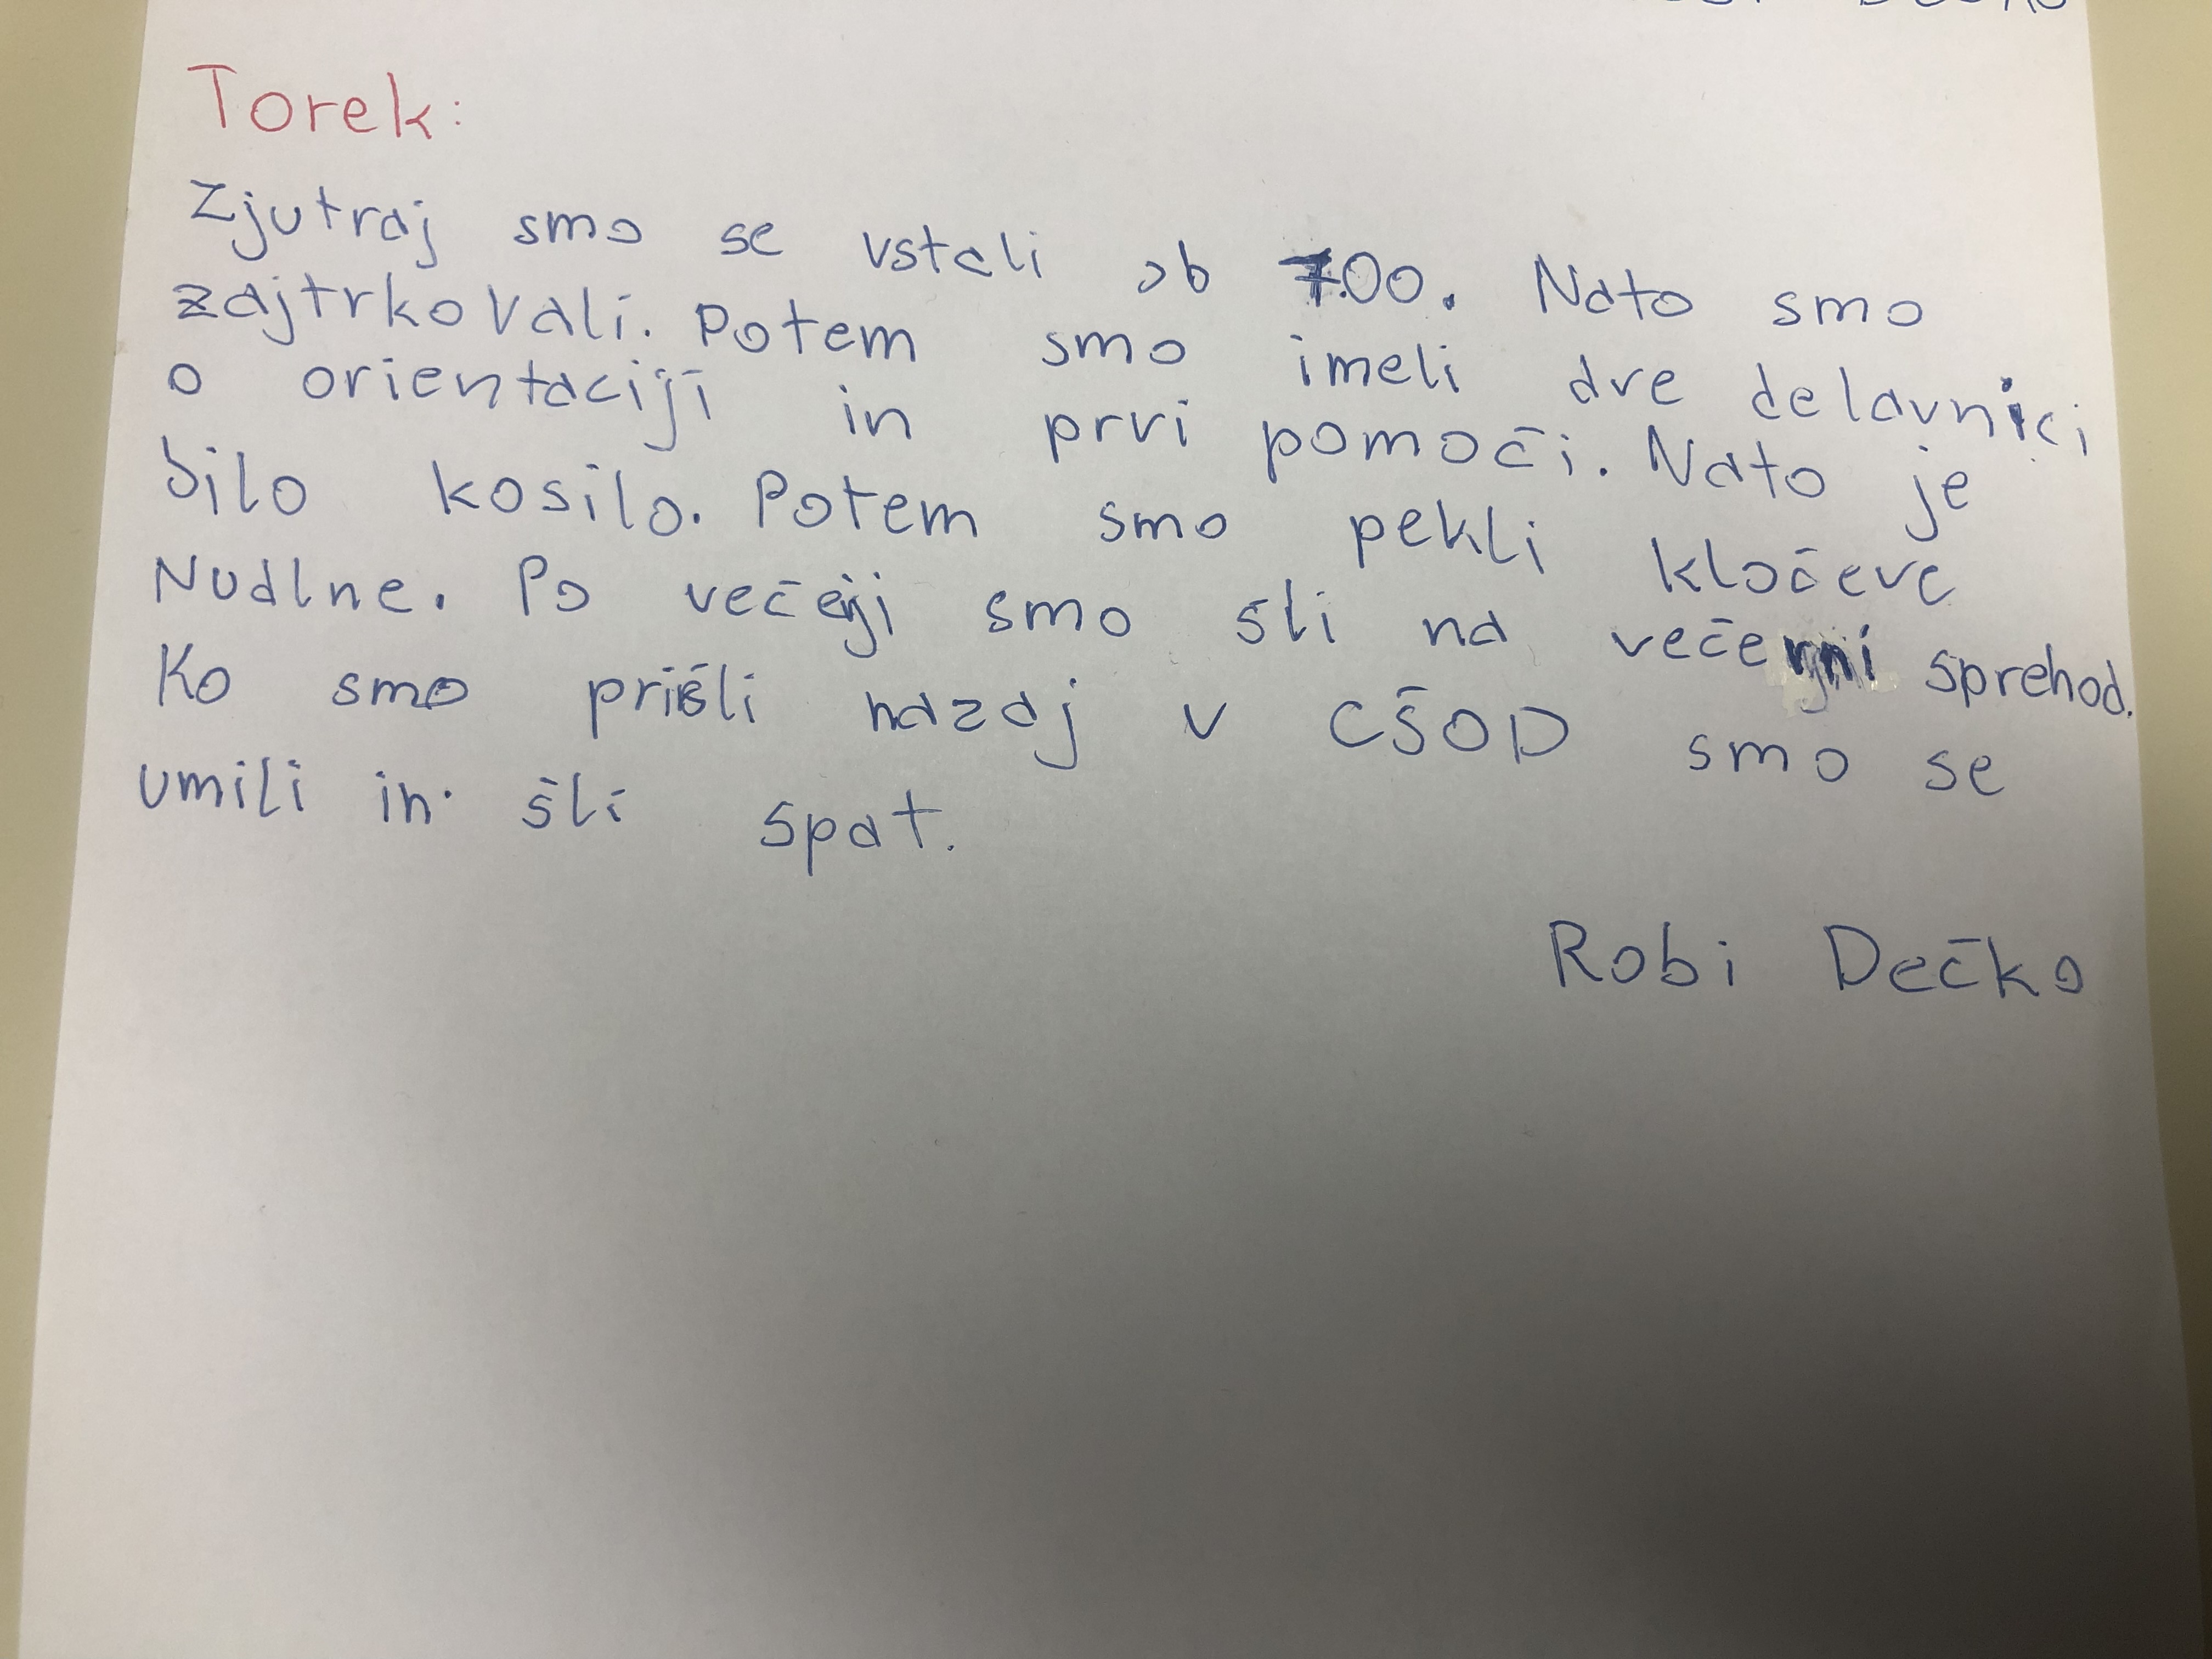 Torek:
Zjutraj smo se vstali ob 7.00. Nato smo
zajtrkovali. Potem smo imeli dve delavnici
o orientaciji in prvi pomoči. Nato je
bilo kosilo. Potem smo pekli kločeve
Nudlne. Po večeji smo šli na večerni sprehod.
Ko smo prišli nazaj v CŠOD smo se
umili in šli spat.
Robi Dečko